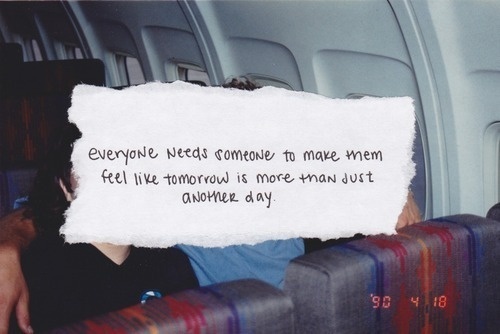 everyone needs someone to make them
feel like tomorrow is more than just
another day.
'90 4 18